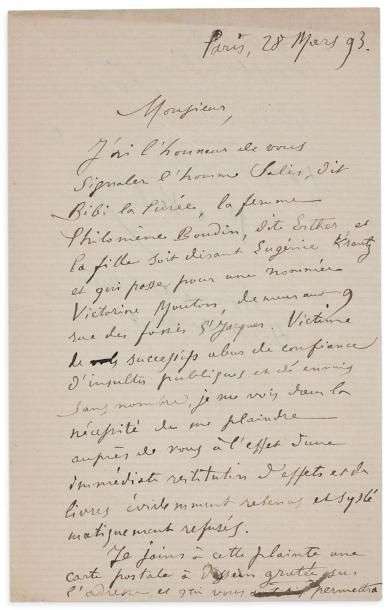 Paris, 28 Mars 93.
Monsieur,
J'ai l'honneur de vous
signaler l'homme Salis, dit
Bibi la Purée, la femme
Philomène Boudin, dite Esther, et
la fille soit disant Eugénie Krantz
et qui passe pour une nommée
Victorine Mouton, demeurant 9
rue des fossés St Jacques. Victime
de successifs abus de confiance
d'insultes publiques et de ennuis
sans nombre, je me vois dans la
nécessité de me plaindre
auprès de vous à l'effet d'une
immédiate restitution d'effets et de
livres évidemment retenus et systé
matiquement refusés.
Je joins à cette plainte une
carte postale à dessein sur
l'adresse et qui vous permettra